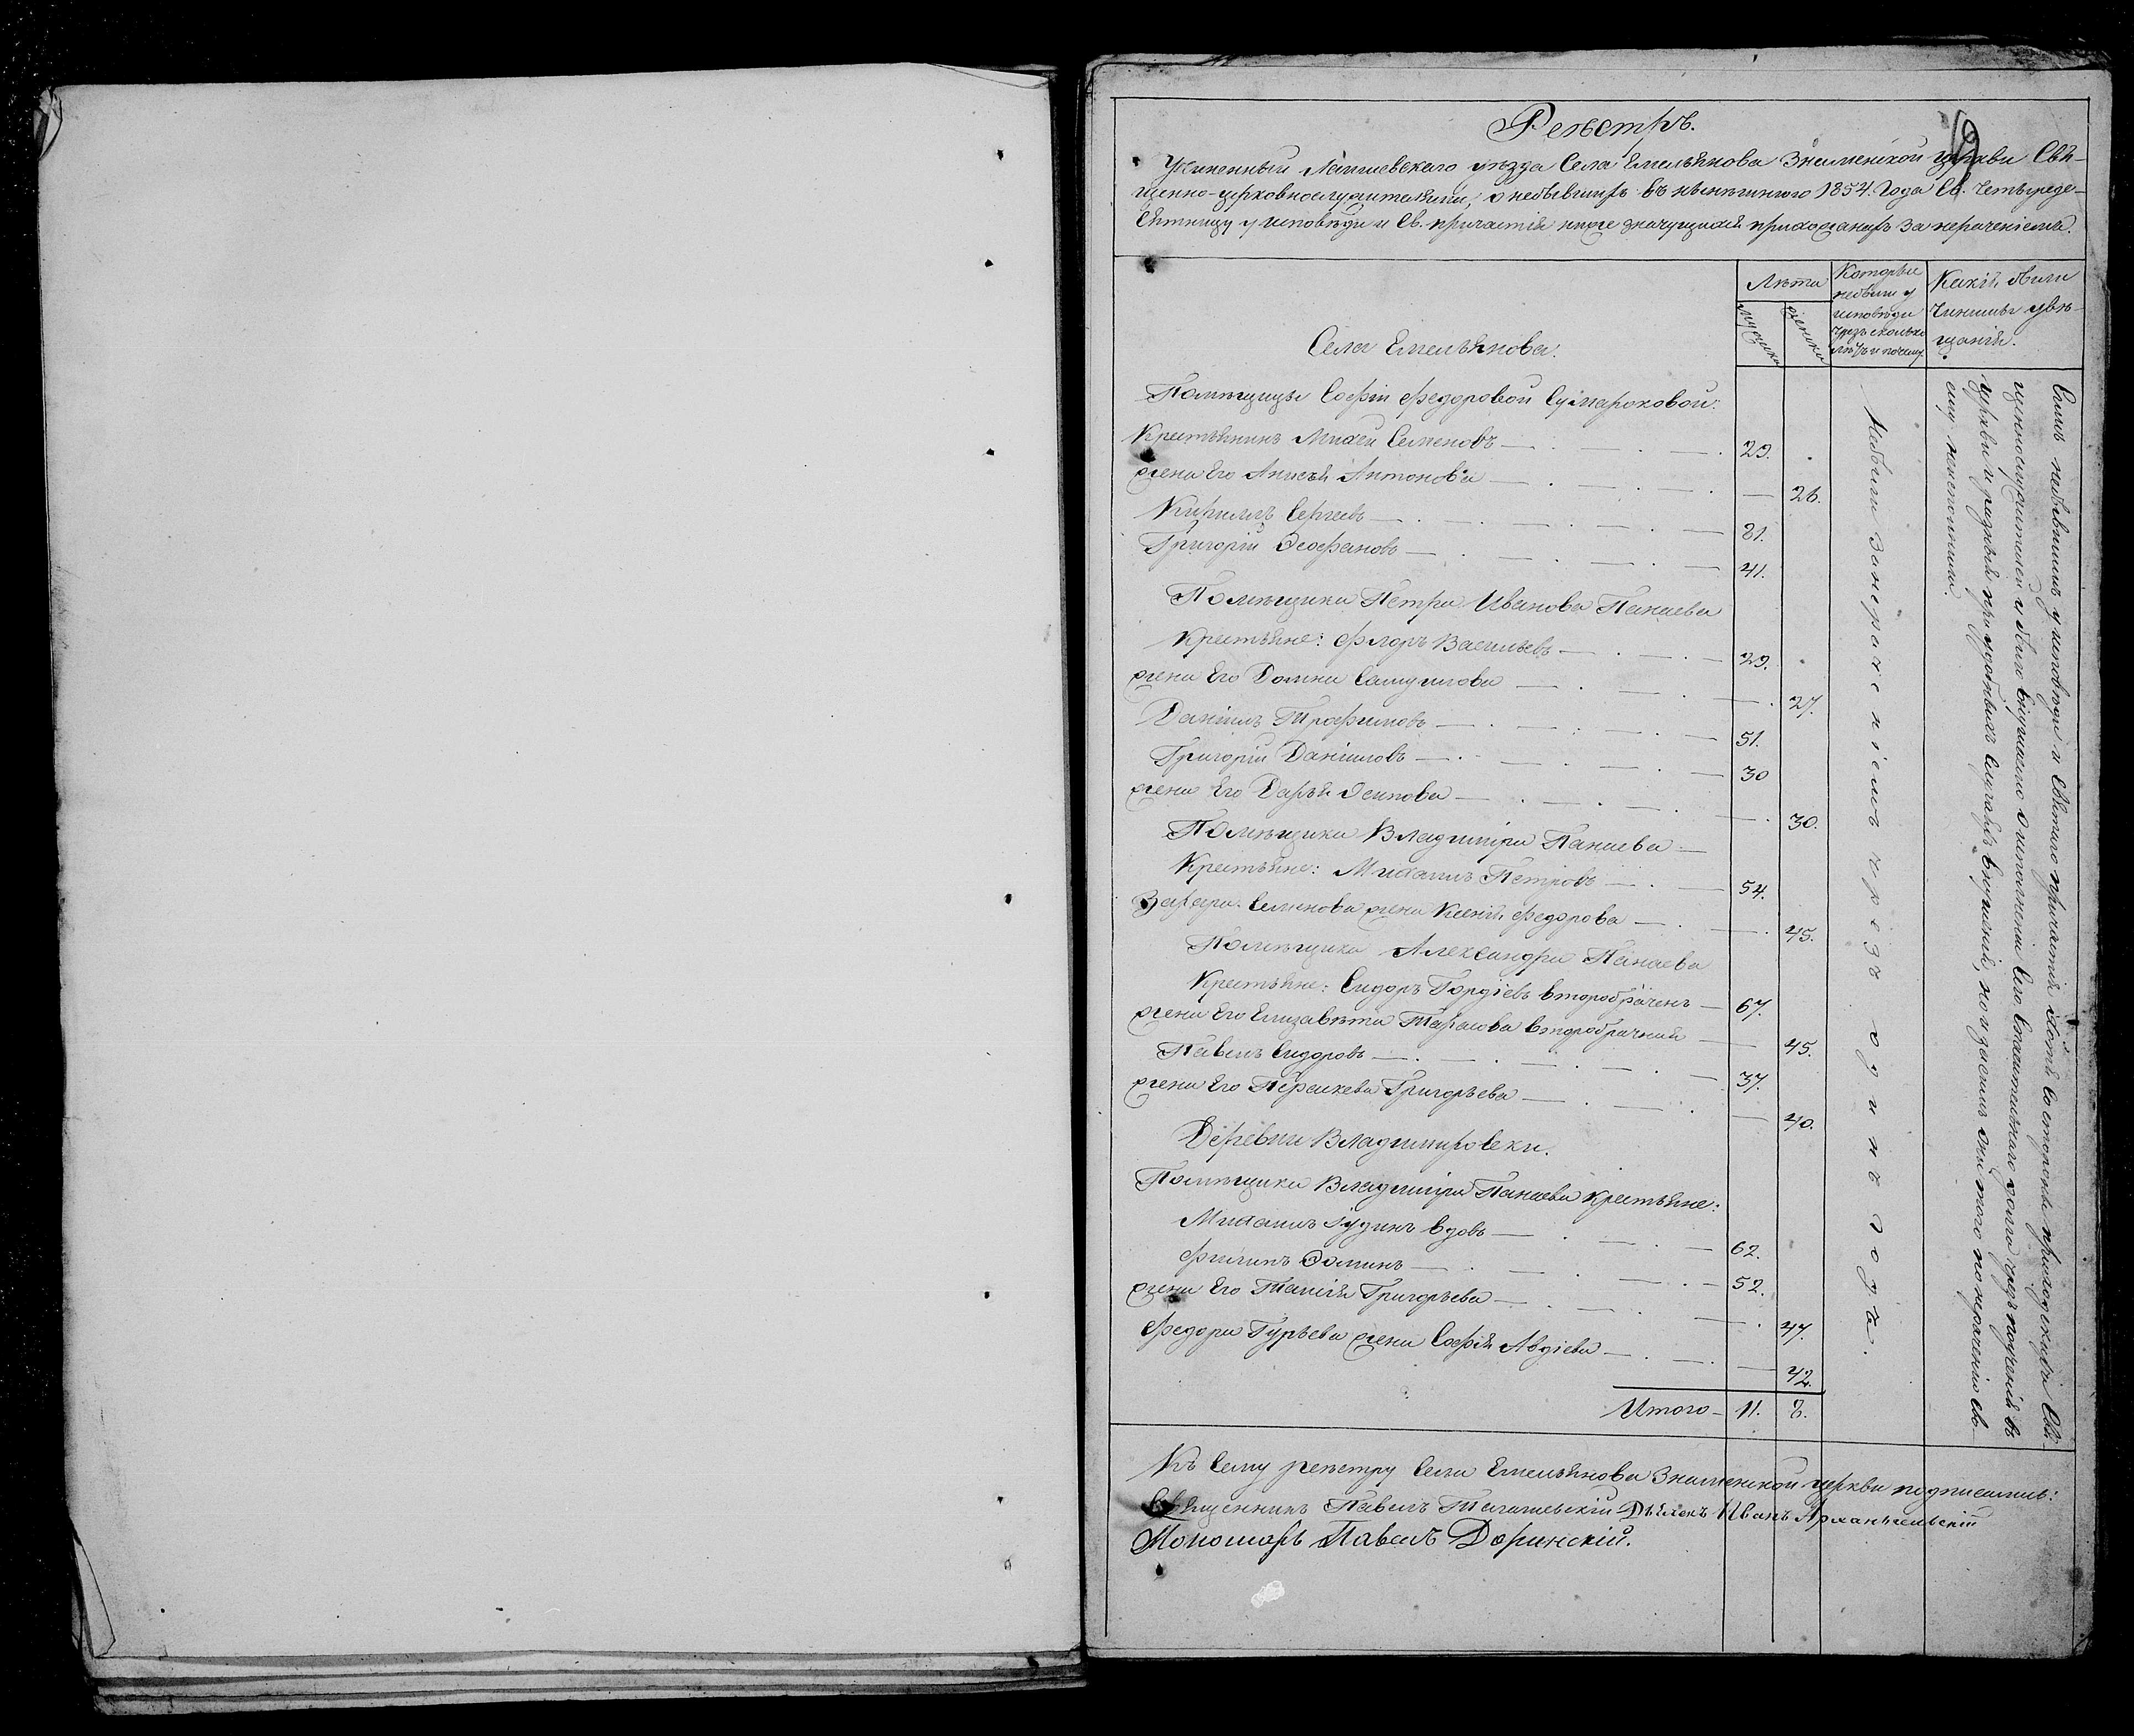 Реэстръ.
Учиненный Лаишевскаго уѣзда Села Емельянова Знаменской церкви Свя-
щенно-церковнослужителями, о небывшихъ въ нынѣшнего 1854. года Св. Четыреде-
сятницу у исповѣди и Св. причастія ниже значущихся прихожанъ за нераченіемъ.
Лѣта
мужеска
женска
Которые
небыли у
исповѣди
чрезъ сколько
лѣтъ и почему
Какія были
чинимы увѣ-
щанія.
Села Емельянова.
Помѣщицы Софіи Федоровой Сумароковой:
Крестьянинъ Михей Семеновъ 29.
жена Его Анисья Антонова 26.
Кириллъ Сергеевъ 81.
Григорій Феофановъ 41.
Помѣщика Петра Иванова Панаева
Крестьяне: Флоръ Васильевъ 29.
жена Его Домна Самуилова 27.
Даніилъ Трофимовъ 51.
Григорій Даніиловъ 30
жена Его Дарья Осипова 30.
Помѣщика Владиміра Панаева
Крестьяне: Михаилъ Петровъ 54.
Захара Семенова жена Ксенія Федорова 45.
Помѣщика Александра Панаева
Крестьяне: Сидоръ Гордіевъ второбраченъ 67.
жена Его Елизавѣта Тарасова второбрачная 45.
Павелъ Сидоровъ 37.
жена Его Параскева Григорьева 40.
Деревни Владимировски.
Помѣщика Владиміра Панаева крестьяне:
Михаилъ Іудинъ вдовъ 62.
Филипъ Фоминъ 52.
жена Его Таисія Григорьева 47.
Федора Гурьева жена Софія Авдіева 42.
Итого 11. 8.
Небыли за нераченіемъ чрезъ одинъ годъ.
Симъ небывшимъ у исповѣди и Святаго причастія хотя со стороны приходскихъ Свя-
щеннослужителей и было внушаемо о исполненіи сего Спасительнаго долга чрезъ поученія въ
церкви и разныя при удобныхъ случаяхъ внушенія, но и за всѣмъ онымъ того по нераченію св-
ему неисполнили.
Къ сему реэстру Села Емельянова Знаменской церкви подписались:
Священникъ Павелъ Дьяконъ Иванъ Архангельскій
Пономарь Павелъ Доринскій.